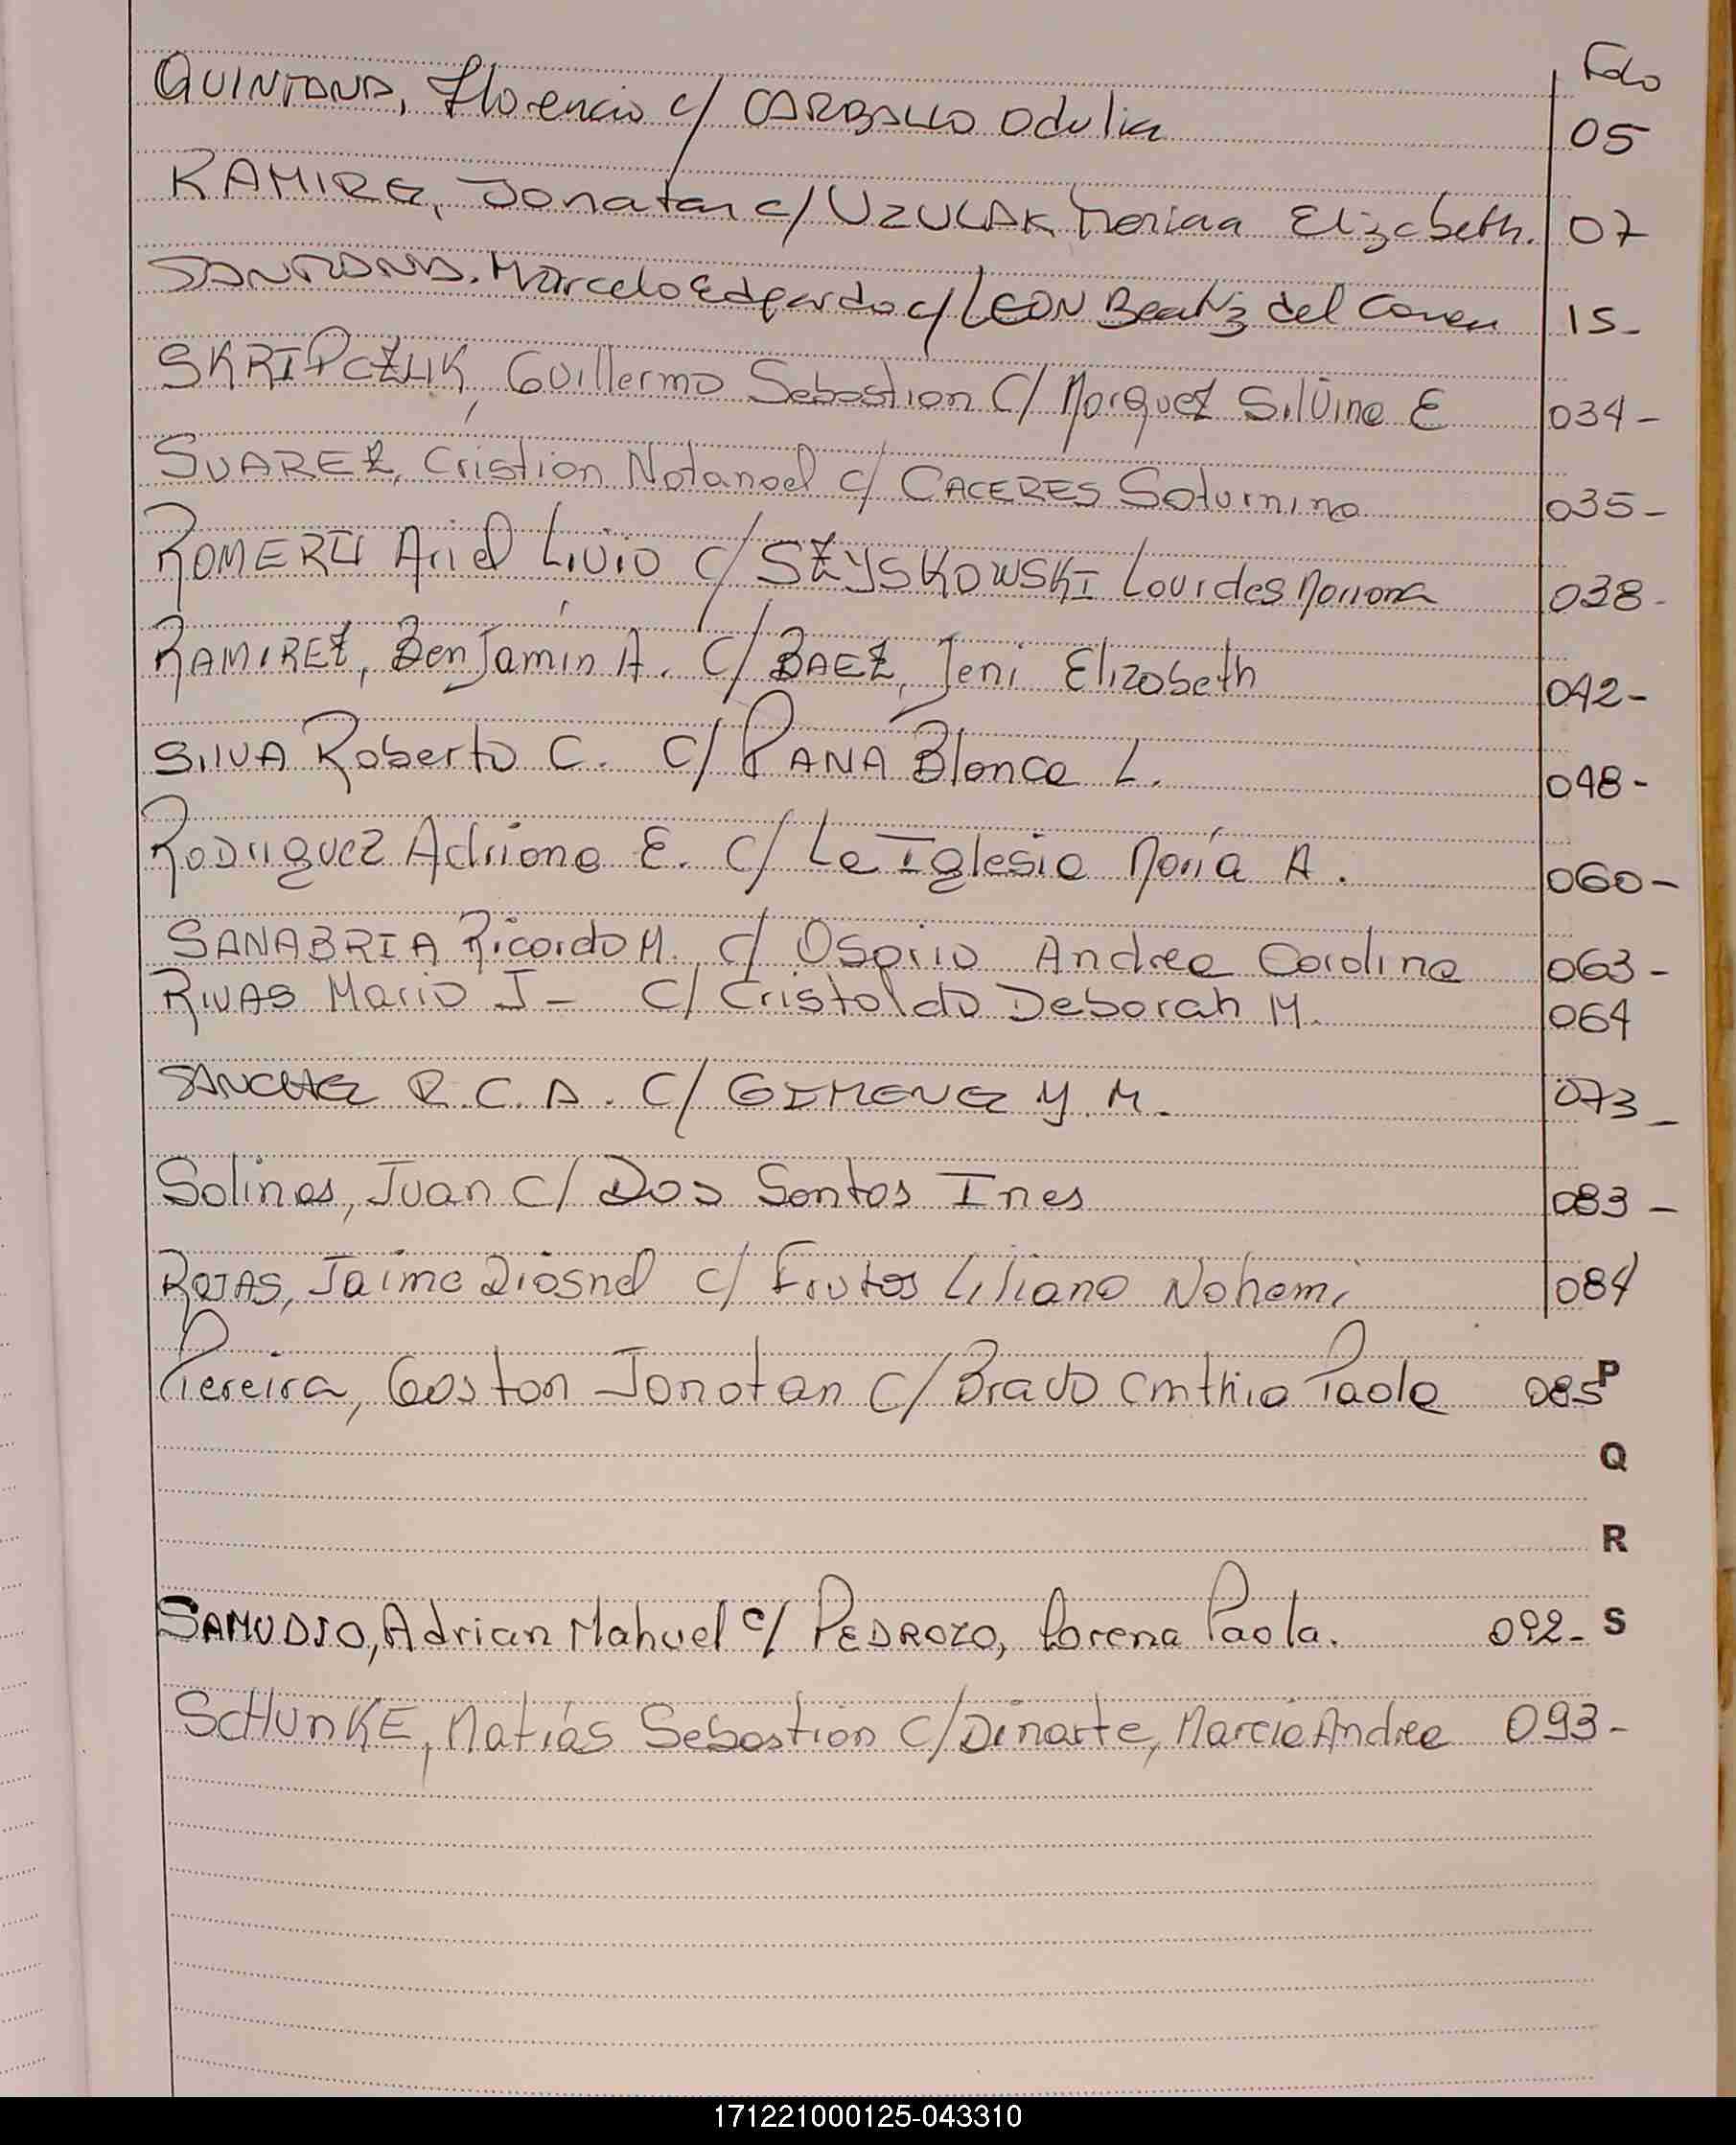 Folio
QUINTANA, Florencio c/ CARBALLO Odulia 05
RAMIREZ, Jonatan c/ UZULAK Mariaa Elizabeth. 07
SANTANA. Marcelo Edgardo c/ LEON Beatriz del Carmen 15-
SKRIPCZUK, Guillermo Sebastian C/ Marquez Silvina E 034-
SUAREZ, Cristian Natanael c/ CACERES Saturnina 035-
ROMERO Ariel Livio c/ SZYSKOWSKI Lourdes Mariana 038-
RAMIREZ, Benjamín A. C/ BAEZ, Jeni Elizabeth 042-
SILVA Roberto C. C/ PANA Blanca L. 048-
RODriguez Adriana E. C/ La Iglesia María A. 060-
SANABRIA Ricardo M. c/ Osorio Andrea Carolina 063-
RIVAS Mario J- C/ Cristaldo Deborah M. 064
SANCHEZ R.C.A. C/ GIMENEZ Y.M. 073-
Solinas, Juan C/ Dos Santos Ines 083-
ROJAS, Jaime Diosnel c/ Frutos Liliana Nohemi 084
Piereira, Gaston Jonatan C/ Bravo Cinthia Paola 085 P
Q
R
SAMUDIO, Adrian Mahuel c/ PEDROZO, Lorena Paola. 092- S
SCHUnKE, Matías Sebastián C/ Dinarte, Marcia Andrea 093-
171221000125-043310